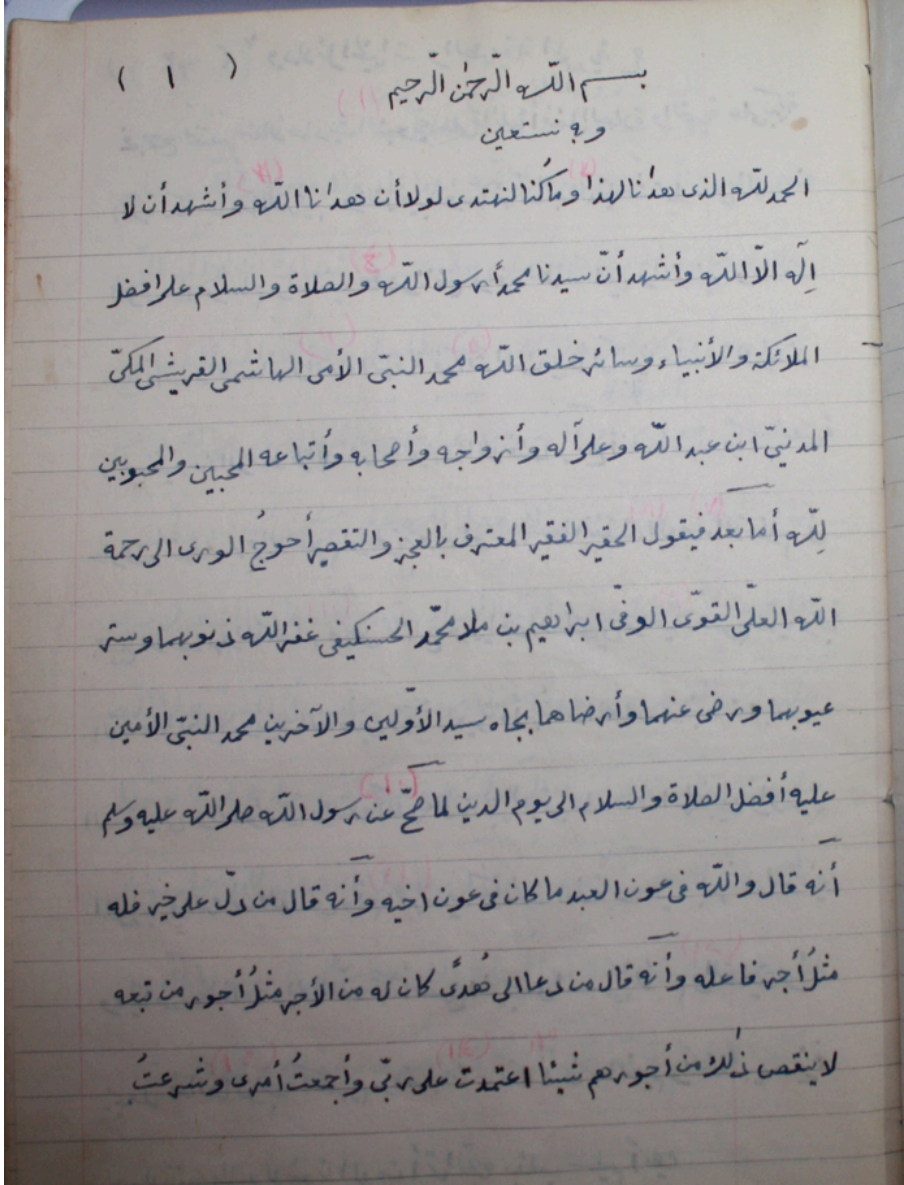 ( ١ )
بسم اللّٰه الرّحمٰن الرّحيم
وبه نستعين
الحمد للّٰه الذى هدٰنا لهذا وماكُنا لنهتدى لولا أن هدٰنا اللّٰه وأشهد أن لا
إلٰه الاّ اللّٰه وأشهد أنّ سيدنا محمداً رسول اللّٰه والصلاة والسلام على افضل
الملائكة والأنبياء وسائر خلق اللّٰه محمد النبىّ الأمى الهاشمى القريشى المكىّ
المدنىّ ابن عبد اللّٰه وعلى آله وأزواجه وأصحابه وأتباعه المحبين والمحبوبين
لِلّٰه أما بعد فيقول الحقير الفقير المعترف بالعجز والتقصير أحوجُ الورى الى رحمة
اللّٰه العلىّ القوىّ الوفىّ ابراهيم بن ملا محمّد الحسنكيفى غفر اللّٰه ذنوبهما وستر
عيوبهما ورضى عنهما وأرضاهما بجاه سيد الأوّلين والآخرين محمد النبىّ الأمين
عليه أفضل الصلاة والسلام الى يوم الدين لما صحّ عن رسول اللّٰه صلى اللّٰه عليه وسلم
أنه قال واللّٰه فى عون العبد ما كان فى عون اخيه وأنه قال من دلّ على خير فله
مثلُ أجر فاعله وأنه قال من دعا الى هُدىً كان له من الأجر مثلُ أجور من تبعه
لا ينقص ذٰلك من أجورهم شيئا اعتمدت على ربّى وأجمعتُ أمرى وشرعتُ